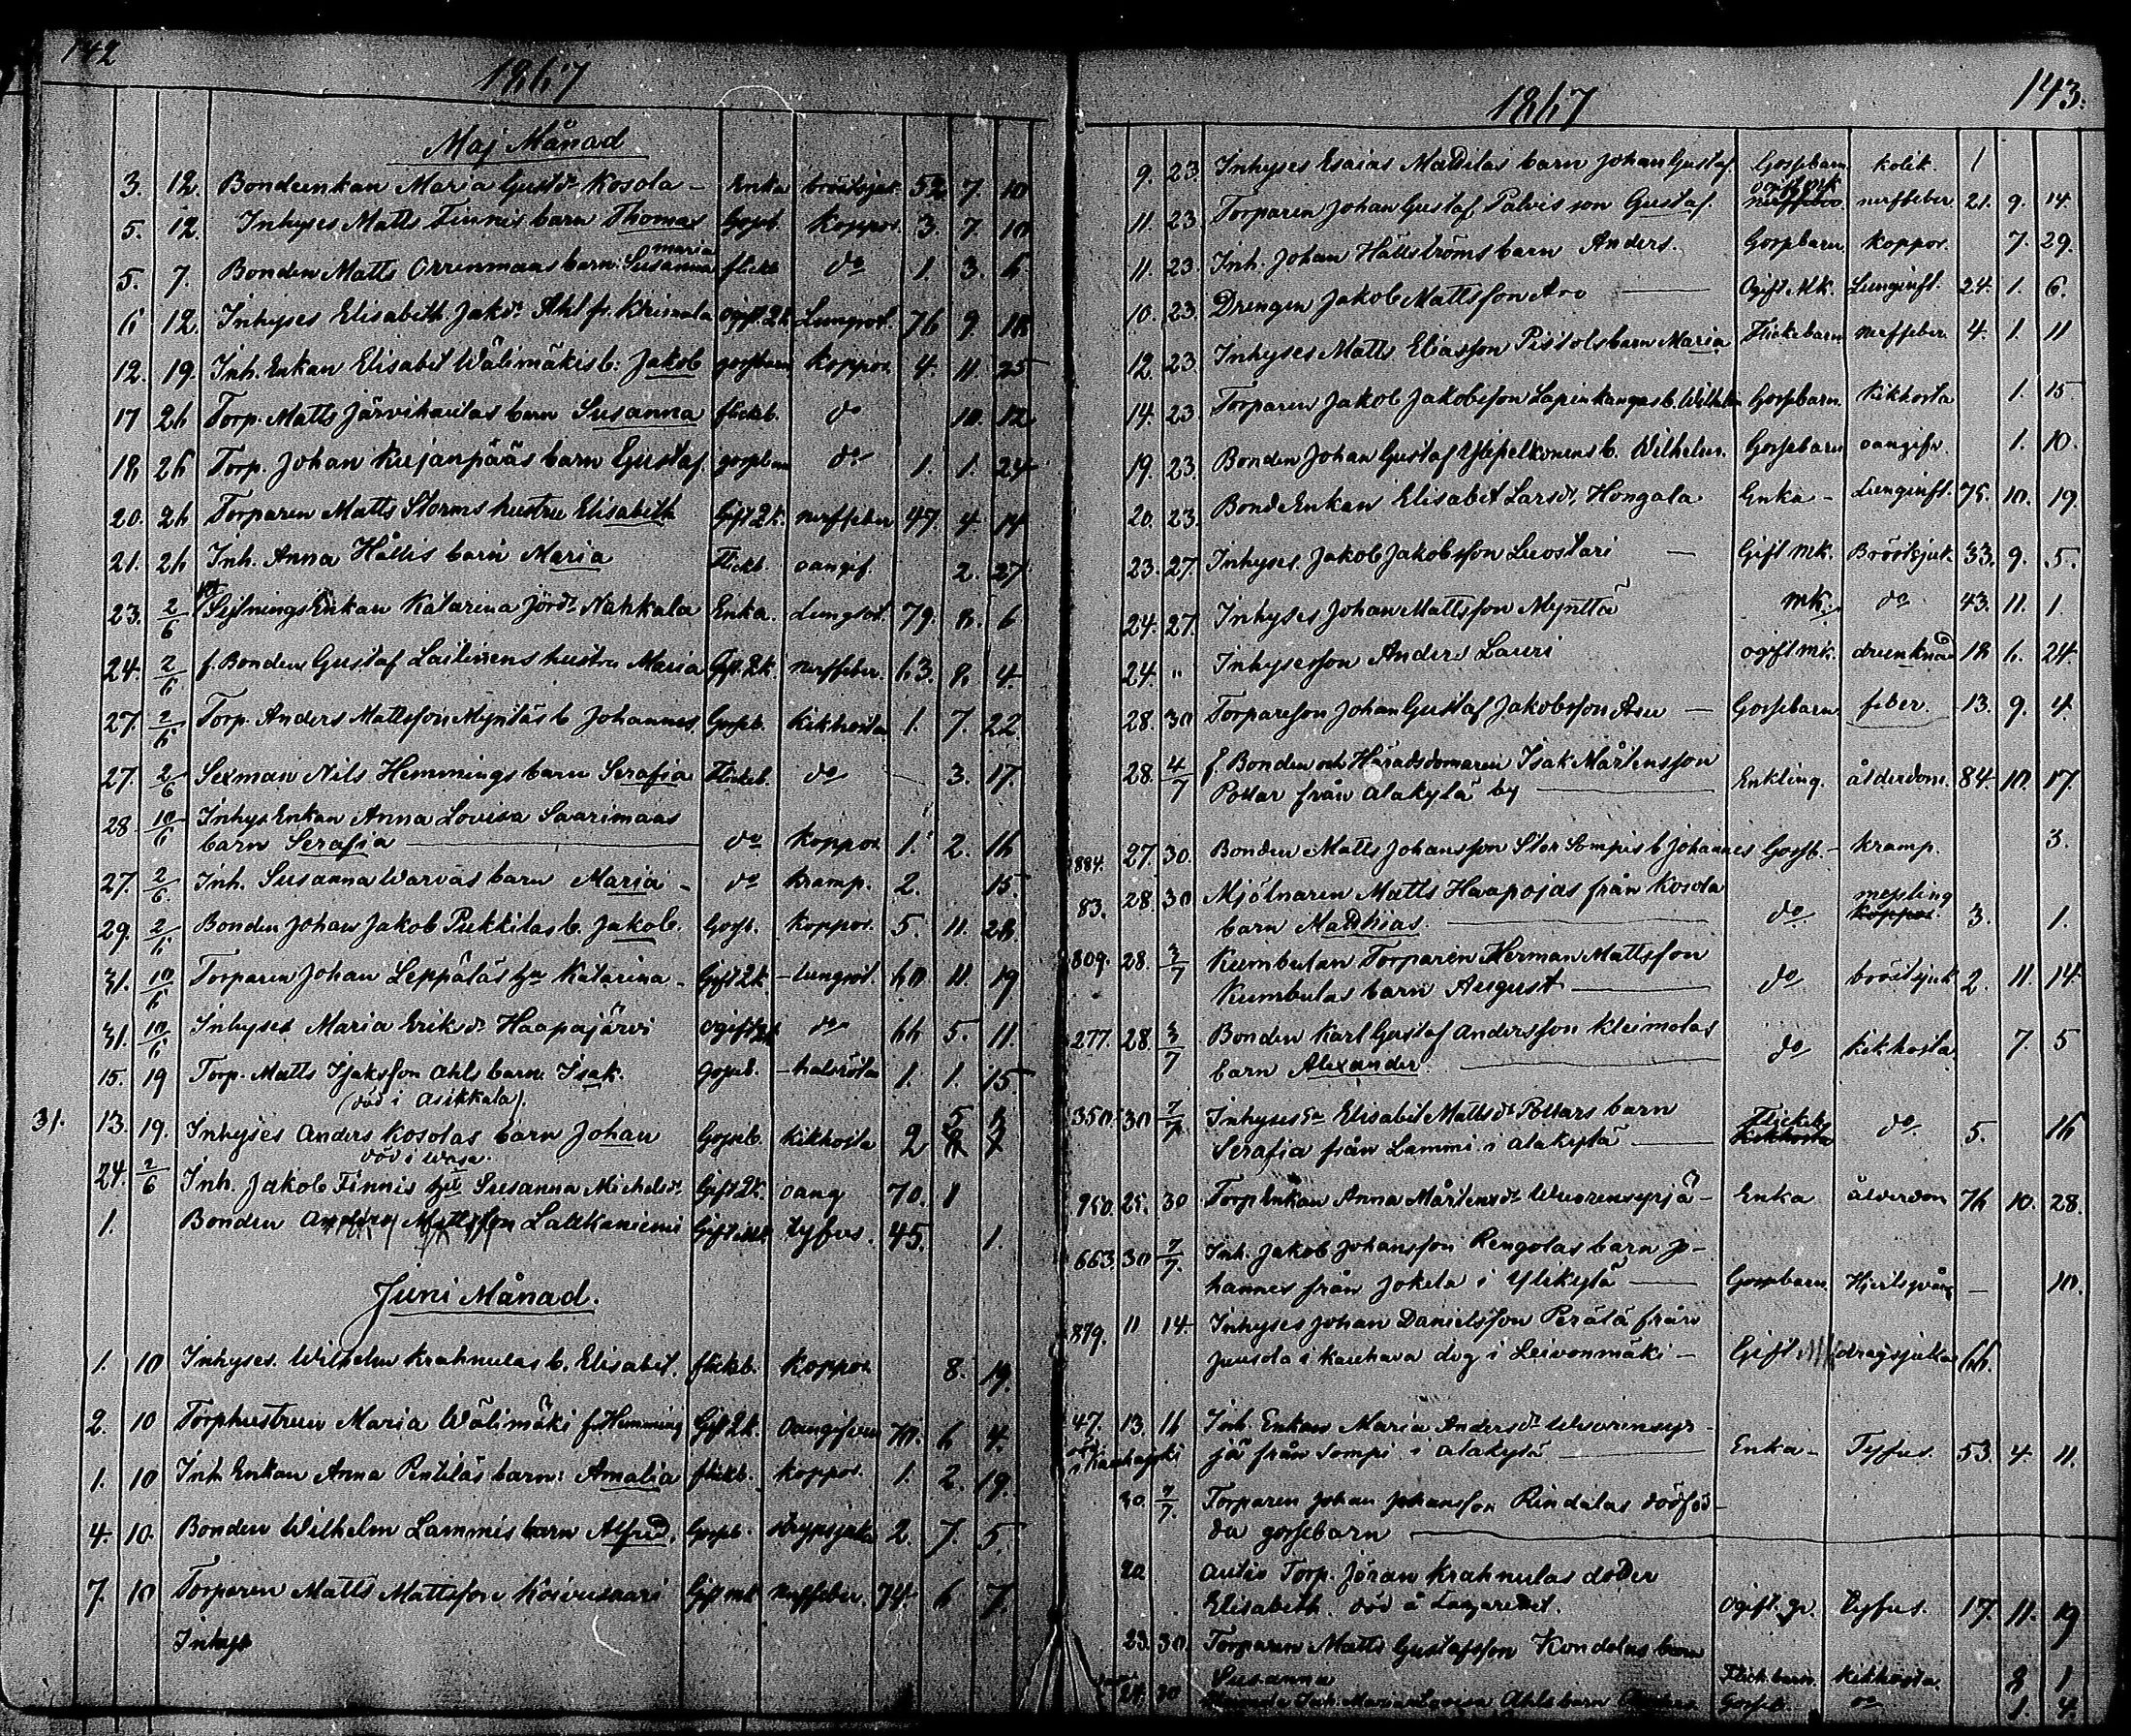 142
1867
Maj Månad
3. 12. Bondeenkan Maria Gustdr Kosola - Enka bröstsjuk. 52 7. 10
5. 12. Inhyses Matts Finnis barn Thomas Gossb. koppor. 3. 7 10
maria
5. 7. Bonden Matts Orrenmaas barn Susanna flickb do 1. 3. 6
6 12. Inhyses Elisabeth Jaksdr Ahl fr. Krimala ogift 2k Lungsot. 76 9. 18
12. 19. Inh. Enkan Elisabet Wälimäkis b: Jakob gossbarn koppor. 4. 11. 25
17 26 Torp. Matts Järvihautas barn Susanna flickb. do 10. 12
18 26 Torp. Johan Kujanpääs barn Gustaf. gossbarn do 1. 1. 24
20. 26 Torparen Matts Storms hustru Elisabeth Gift 2k. nerffeber 47. 4. 14
21. 26 Inh. Anna Hållis barn Maria Flickb. oangif. 2. 27
23. 2/6 Sytnings Enkan Katarina Jördr Nahkala Enka. Lungsot. 79. 8. 6
24. 2/6 f. Bonden Gustaf Laitinens hustru Maria Gft. 2k. nerffeber. 63. 8. 4.
27. 2/6 Torp. Anders Mattsson Myntäs b Johannes. Gossb. Kikhosta 1. 7. 22
27. 2/6 Sexman Nils Hemmings barn Serafia Flickb. do - 3. 17.
28 10/6 Inhys Enkan Anna Lovisa Saarimaas
barn Serafia do koppor. 1. 2. 16
27. 2/6. Inh. Susanna Warvas barn Maria - do kramp. 2. 15.
29. 2/6 Bonden Johan Jakob Pukkilas b. Jakob. Gossb. koppor. 5. 11. 28.
31. 10/6 Torparen Johan Leppäläs hu Katarina - Gift 2k. - lungsot. 60. 11. 19
31. 10/6 Inhyses Maria Eriksdr Haapajärvi ogift 2k do 66 5. 11.
15. 19 Torp. Matts Isaksson Ahls barn Isak. gossb. - halsröta 1. 1. 15
(död i Asikkala).
31. 13. 19. Inhyses Anders Kosolas barn Johan Gossb. Kikhosta 2 5
död i Wasa.
24. 2/6 Inh. Jakob Finnis hu Susanna Michelsdr Gift 2k. oang 70. 1
1. Bonden Anders Mattsson Lakkaniemi Gift mk tyfus. 45. 1.
Juni Månad.
1. 10 Inhyses. Wilhelm Krahnulas b. Elisabet. flickb. koppor 8. 19.
2. 10 Torphustrun Maria Wälimäki f. Hemming Gift 2k. oangifven 70. 6 4.
1. 10 Inh Enkan Anna Penttiläs barn: Amalia flickb. koppor. 1. 2. 19.
4. 10. Bonden Wilhelm Lammis barn Alfred. Gossb. Strypsjuka 2. 7. 5.
7. 10 Torparen Matts Mattsson Koivusaari Gift mk nerffeber. 74. 6 7.
Inhys
143.
1867
9. 23. Inhyses Esaias Mattilas barn Johan Gustaf. Gossebarn kolik. 1
ogift mk
11. 23 Torparen Johan Gustaf Palvis son Gustaf. nerffeber 21. 9. 14.
11. 23. Inh. Johan Hällströms barn Anders. Gossbarn koppor. 7. 29.
10. 23. Drengen Jakob Mattsson Aro Ogift Mk. Lunginfl. 24. 1. 6.
12. 23 Inhyses Matts Eliasson Pistols barn Maria Flickebarn nerffeber 4. 1. 11
14. 23 Torparen Jakob Jakobsson Lapinkangas b. Wilhelm Gossbarn. Kikhosta 1. 15
19. 23 Bonden Johan Gustaf Ylipelkonens b. Wilhelm. Gossebarn oangifv. 1. 10.
20. 23. BondEnkan Elisabet Larsdr. Hongala Enka - Lunginfl. 75. 10. 19.
23. 27. Inhyses. Jakob Jakobsson Luostari Gift mk. Bröstsjuk. 33. 9. 5.
24. 27. Inhyses Johan Mattsson Mynttä mk. do 43. 11. 1.
24. " Inhysesson Anders Lauri ogift mk. drunknad 18 6. 24.
28. 30 Torpareson Johan Gustaf Jakobsson Asu - Gossebarn feber. 13. 9. 4.
28. 4/7 f. Bonden och Häradsdomaren Isak Mårtensson
Pottar från Alakylä by Enkling. ålderdom. 84. 10. 17.
884. 27. 30. Bonden Matts Johansson Stor Sompis b Johannes Gossb. - kramp. 3.
83. 28. 30 Mjölnaren Matts Haapojas från Kosola messling
barn Matthias. do koppor. 3. 1.
809. 28. 3/7 Kumbulan Torparen Herman Mattsson
Kumbulas barn August do bröstsjuk 2. 11. 14.
277. 28. 3/7 Bonden Karl Gustaf Andersson Kleimolas
barn Alexander. do kikhosta 7. 5
350. 30 7/7 Inhyses Elisabet Mattsdr Pottars barn Flickeb
Serafia från Lammi i Alakylä Kikhosta do. 5. 16
950. 25. 30 Torp Enkan Anna Mårtensdr Wuorensyrjä - Enka ålderdom 76 10. 28.
663. 30 7/7. Inh. Jakob Johansson Rengolas barn Jo-
hannes från Jokela i Ylikylä Gossebarn. Hjertsprång - 10.
879. 11 14. Inhyses Johan Danielsson Perälä från
Juusola i Kauhava dog i Leivonmäki - Gift Mk dragsjuka 66.
47. 13. 16 Inh. Enkan Maria Andersdr Wuorensyr-
jä från Sompi i Alakylä Enka - Tyfus. 53. 4. 11.
30. 7/7. Torparen Johan Johansson Rindalas dödföd-
da gossebarn
20 Autio Torp. Jöran Krahnulas dotter
Elisabeth. död å Lazarettet. Ogift. qv. tyfus. 17. 11. 19
23. 30. Torparen Matts Gustafsson Kondolas barn
Susanna Flick. barn. Kikhosta. 8 1
24. 30 Inh. Maria Lovisa Ahls barn Gosseb. do 1. 4.